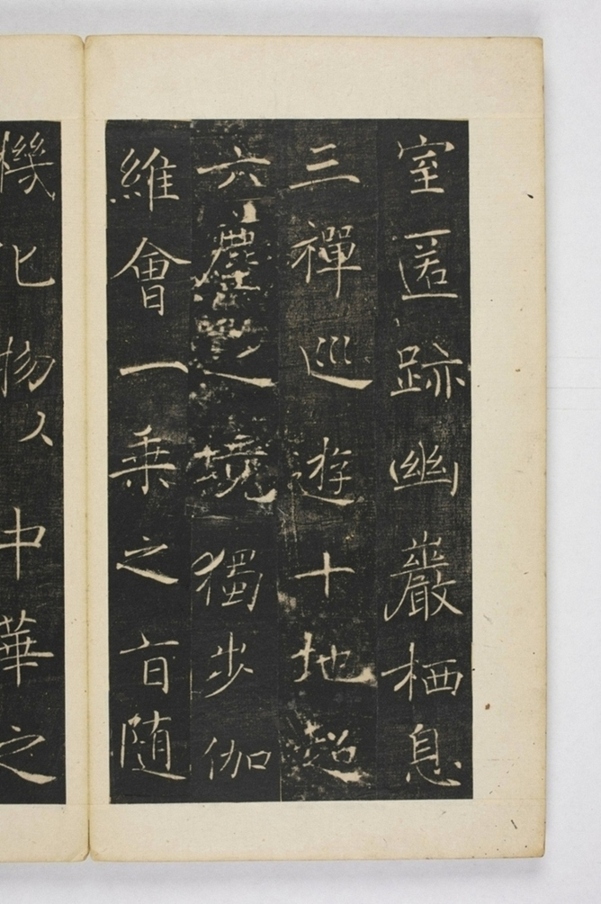 室匿跡幽巖栖息
三禪巡遊十地超
六塵之境獨步伽
維會一乘之旨随
機化物以中華之